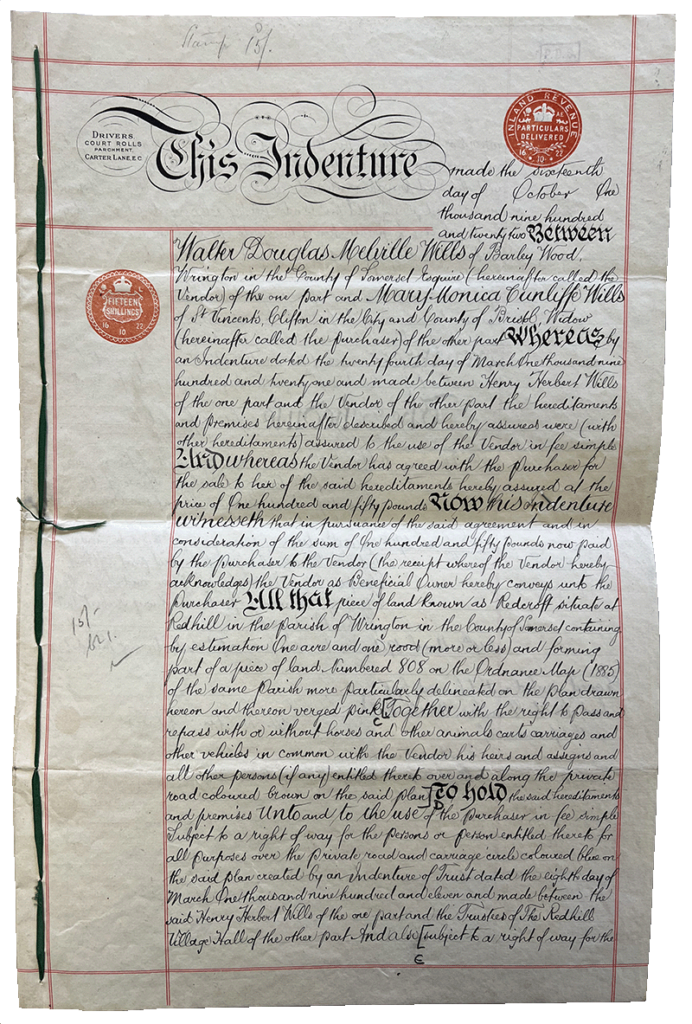 Stamp 15/.
DRIVERS
COURT ROLLS
PARCHMENT
CARTER LANE, E.C.
This Indenture
INLAND REVENUE
PARTICULARS
DELIVERED
16 10 22
made the sixteenth
day of October One
thousand nine hundred
and twenty two Between
Walter Douglas Melville Wills of Barley Wood,
Wrington in the County of Somerset Esquire (hereinafter called the
Vendor) of the one part and Mary Monica Cunliffe Wills
of St Vincents, Clifton in the City and County of Bristol Widow
(hereinafter called the purchaser) of the other part Whereas by
an Indenture dated the twenty fourth day of March One thousand nine
hundred and twenty one and made between Henry Herbert Wills
of the one part and the Vendor of the other part the hereditaments
and premises hereinafter described and hereby assured were (with
other hereditaments) assured to the use of the Vendor in fee simple
And whereas the Vendor has agreed with the Purchaser for
the sale to her of the said hereditaments hereby assured at the
price of One hundred and fifty pounds Now this Indenture
witnesseth that in pursuance of the said agreement and in
consideration of the sum of One hundred and fifty pounds now paid
by the purchaser to the Vendor (the receipt whereof the Vendor hereby
acknowledges) the Vendor as Beneficial Owner hereby conveys unto the
Purchaser All that piece of land known as Redcroft situate at
Redhill in the parish of Wrington in the County of Somerset containing
by estimation One acre and one rood (more or less) and forming
part of a piece of land Numbered 808 on the Ordnance Map (1885)
of the same Parish more particularly delineated on the plan drawn
hereon and thereon verged pink [Together with the right to pass and
C
repass with or without horses and other animals carts carriages and
other vehicles in common with the Vendor his heirs and assigns and
all other persons (if any) entitled thereto over and along the private
road coloured brown on the said plan] To hold the said hereditaments
D
and premises Unto and to the use of the purchaser in fee simple
Subject to a right of way for the persons or person entitled thereto for
all purposes over the private road and carriage circle coloured blue on
the said plan created by an Indenture of Trust dated the eighth day of
March One thousand nine hundred and eleven and made between the
said Henry Herbert Wills of the one part and the Trustees of The Redhill
Village Hall of the other part And also [subject to a right of way for the
E
FIFTEEN
SHILLINGS
16 22
10
15/-